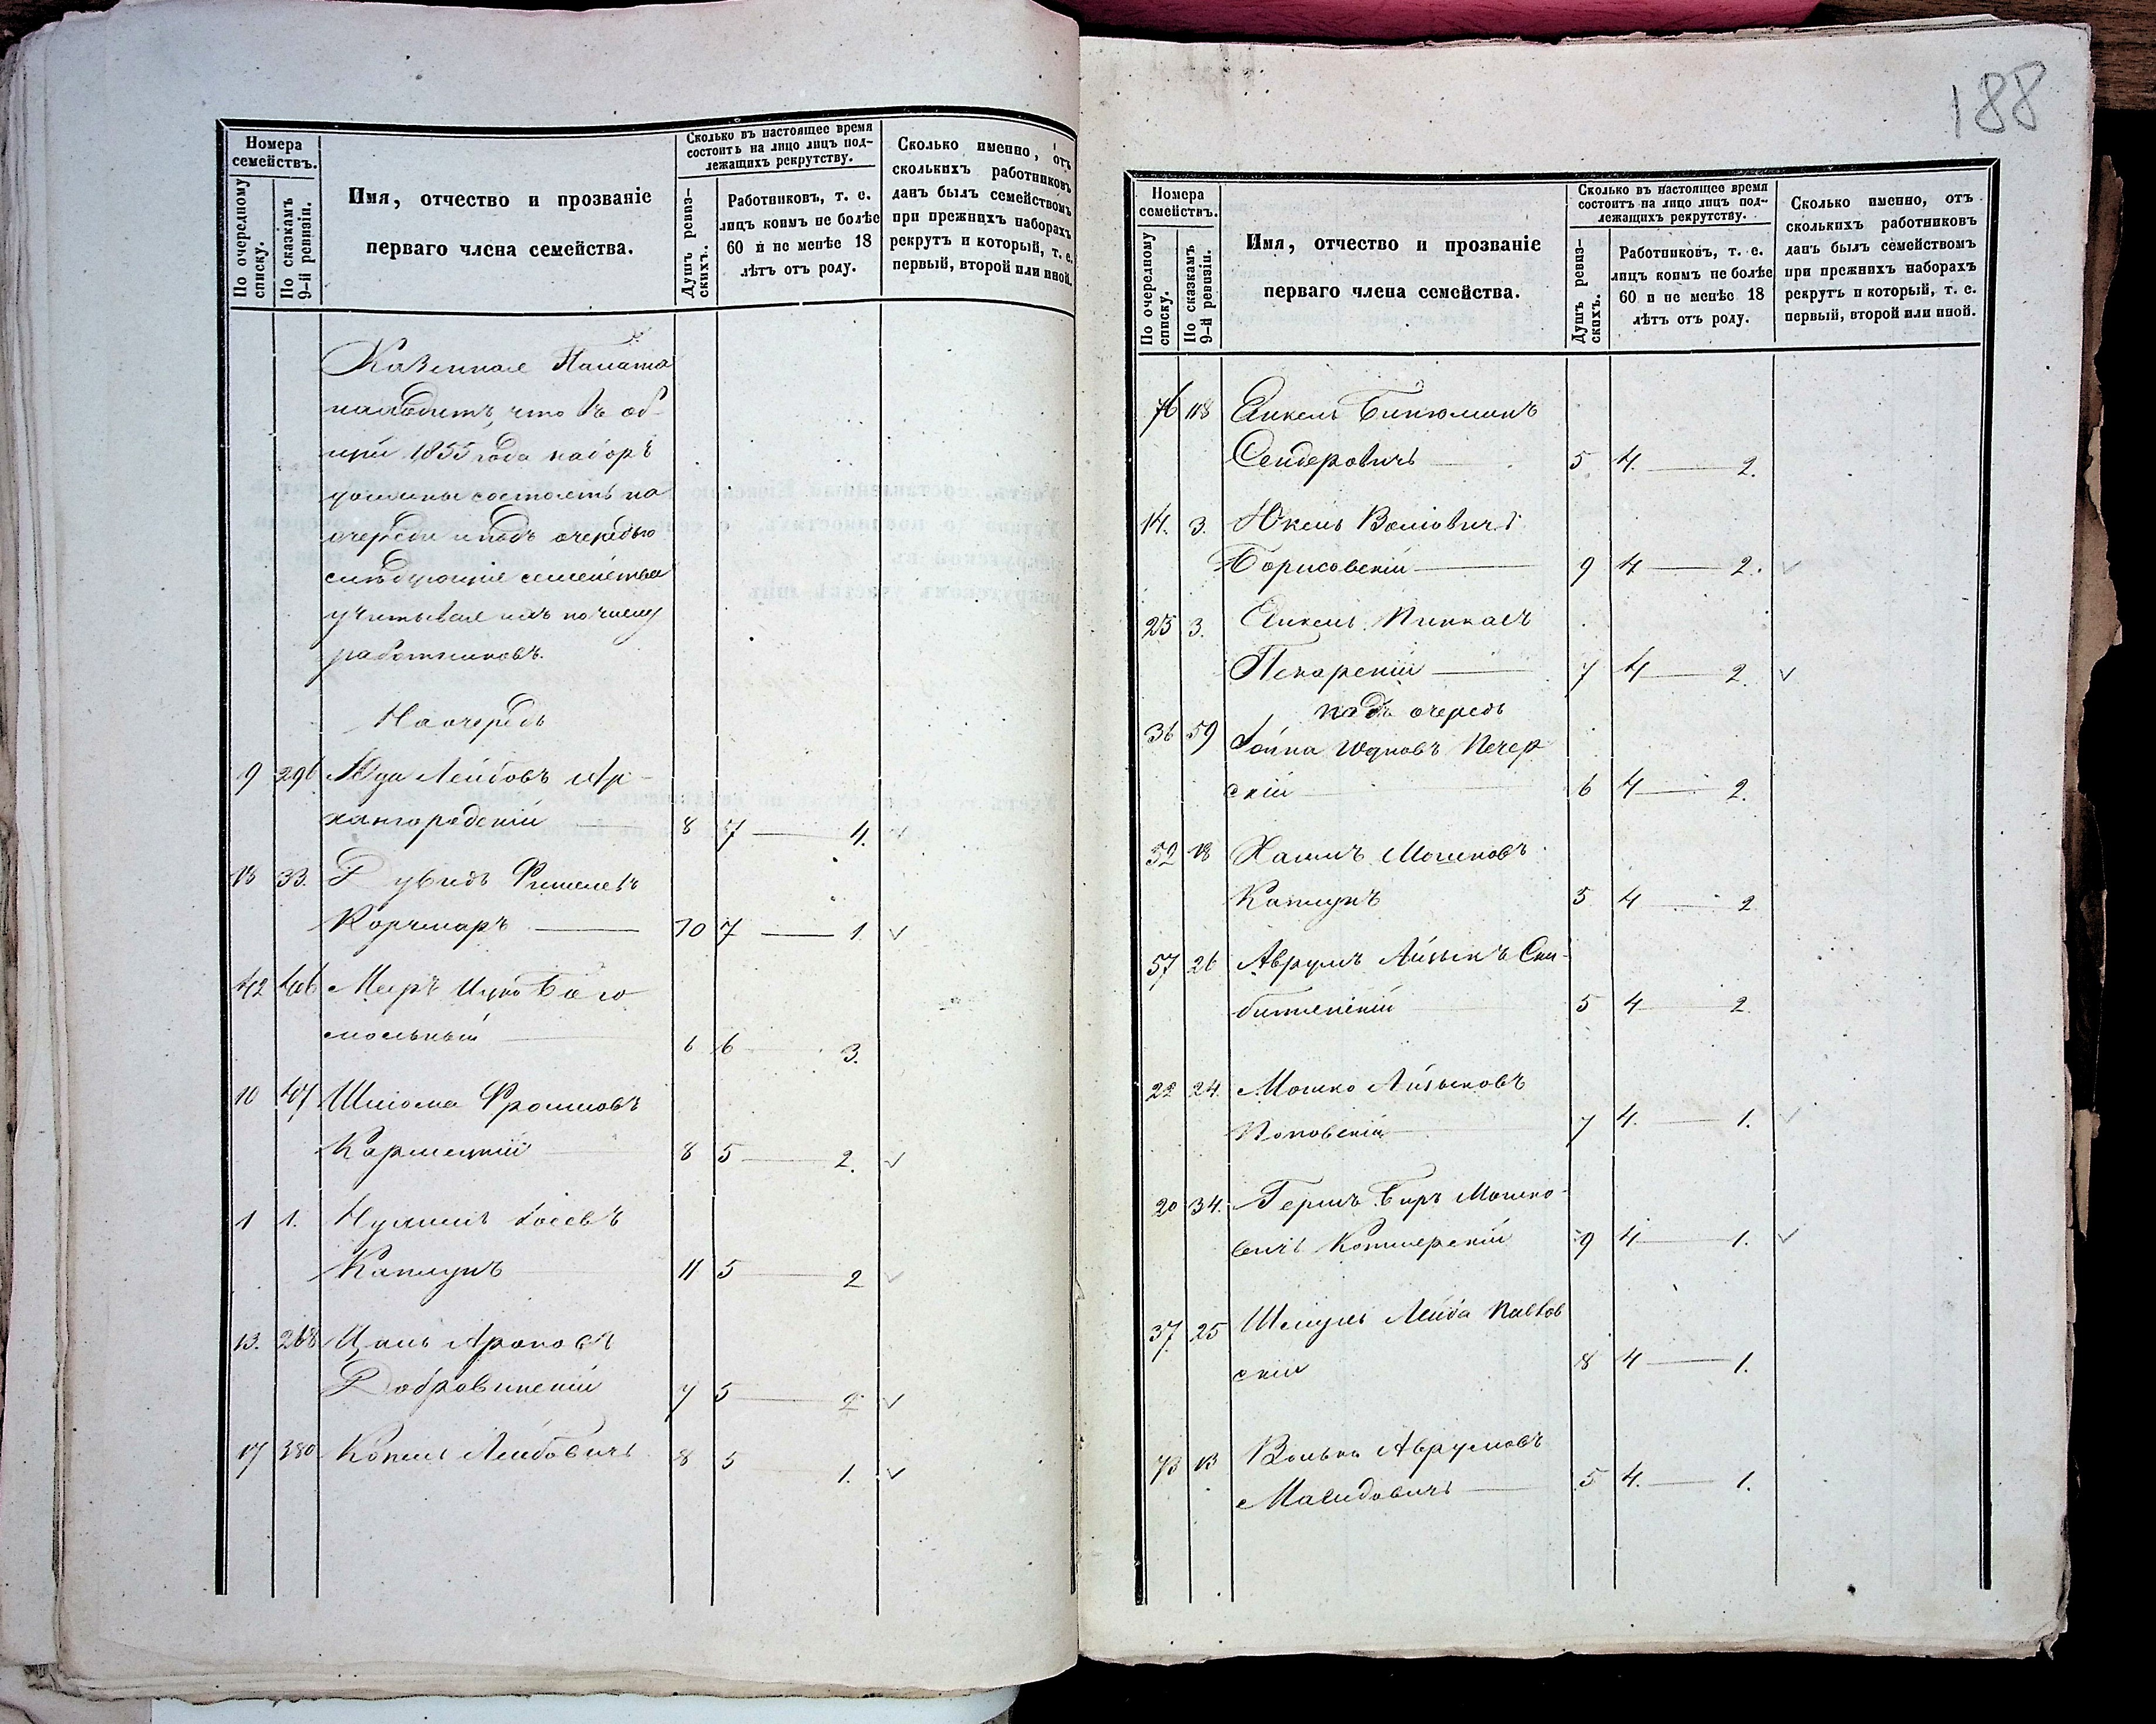 Номера
семействъ.
По очередному
списку.
По сказкамъ
9-й ревизіи.
Имя, отчество и прозваніе
перваго члена семейства.
Сколько въ настоящее время
состоитъ на лицо лицъ под-
лежащихъ рекрутству.
Душъ ревиз-
скихъ.
Работниковъ, т. е.
лицъ коимъ не болѣе
60 и не менѣе 18
лѣтъ отъ роду.
Сколько именно, отъ
сколькихъ работниковъ
данъ былъ семействомъ
при прежнихъ наборахъ
рекрутъ и который, т. е.
первый, второй или иной.
Казенная Палата
находитъ, что въ об-
щій 1855 года наборъ
должны состоять на
очереди и подъ очередью
слѣдующіе семейства
учитывая ихъ по числу
работниковъ.
На очередь
9 296 Юда Лейбовъ Ар-
хангородскій 8 7 — 4.
13 33. Дувидъ Фишелевъ
Корчмаръ 10 7 — 1. ✓
42 406 Меиръ Ицко Бого
мольный 6 6 3.
10 407 Шлюма Фроимовъ
Кармецкій 8 5 — 2. ✓
1 1. Нухимъ Іосевъ
Каплунъ 11 5 — 2 ✓
13. 268 Ароновъ
Добровинскій 7 5 — 2 ✓
17 380 Копель Лейбовичъ 8 5 1. ✓
188
Номера
семействъ.
По очередному
списку.
По сказкамъ
9-й ревизіи.
Имя, отчество и прозваніе
перваго члена семейства.
Сколько въ настоящее время
состоитъ на лицо лицъ под-
лежащихъ рекрутству.
Душъ ревиз-
скихъ.
Работниковъ, т. е.
лицъ коимъ не болѣе
60 и не менѣе 18
лѣтъ отъ роду.
Сколько именно, отъ
сколькихъ работниковъ
данъ былъ семействомъ
при прежнихъ наборахъ
рекрутъ и который, т. е.
первый, второй или иной.
76 118 Янкель Биніоминъ
Сендеровичъ 5 4. — 2.
14. 3. Юкель Воліовичъ
Борисовскій 9 4 — 2. ✓
25 3. Янкель Пинхасъ
Пекарскій 7 4 — 2. ✓
подъ очередь
36 59 Іойна Ицковъ Печер
скій 6 4 — 2.
52 18 Хаимъ Мошковъ
Каплунъ 5 4 — 2
57 26 Аврумъ Айзыкъ Ски
битенскій 5 4 — 2.
22 24. Мошко Айзыковъ
Поповскій 7 4. — 1. ✓
20 34. Гершъ Беръ Мошко-
вичъ Котлерскій 9 4 — 1. ✓
37 25 Шмуль Лейба Павлов
скій 8 4 — 1.
73 13 Волько Аврумовъ
Мавидовичъ 5 4. — 1.